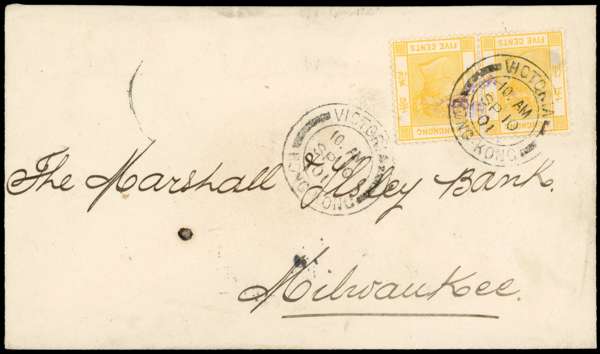 FIVE CENTS
FIVE CENTS
HONGKONG
VICTORIA
10. AM
SP 10
01
HONG-KONG
VICTORIA
10. AM
SP 10
01
HONG-KONG
The Marshall & Ilsley Bank.
Milwaukee.